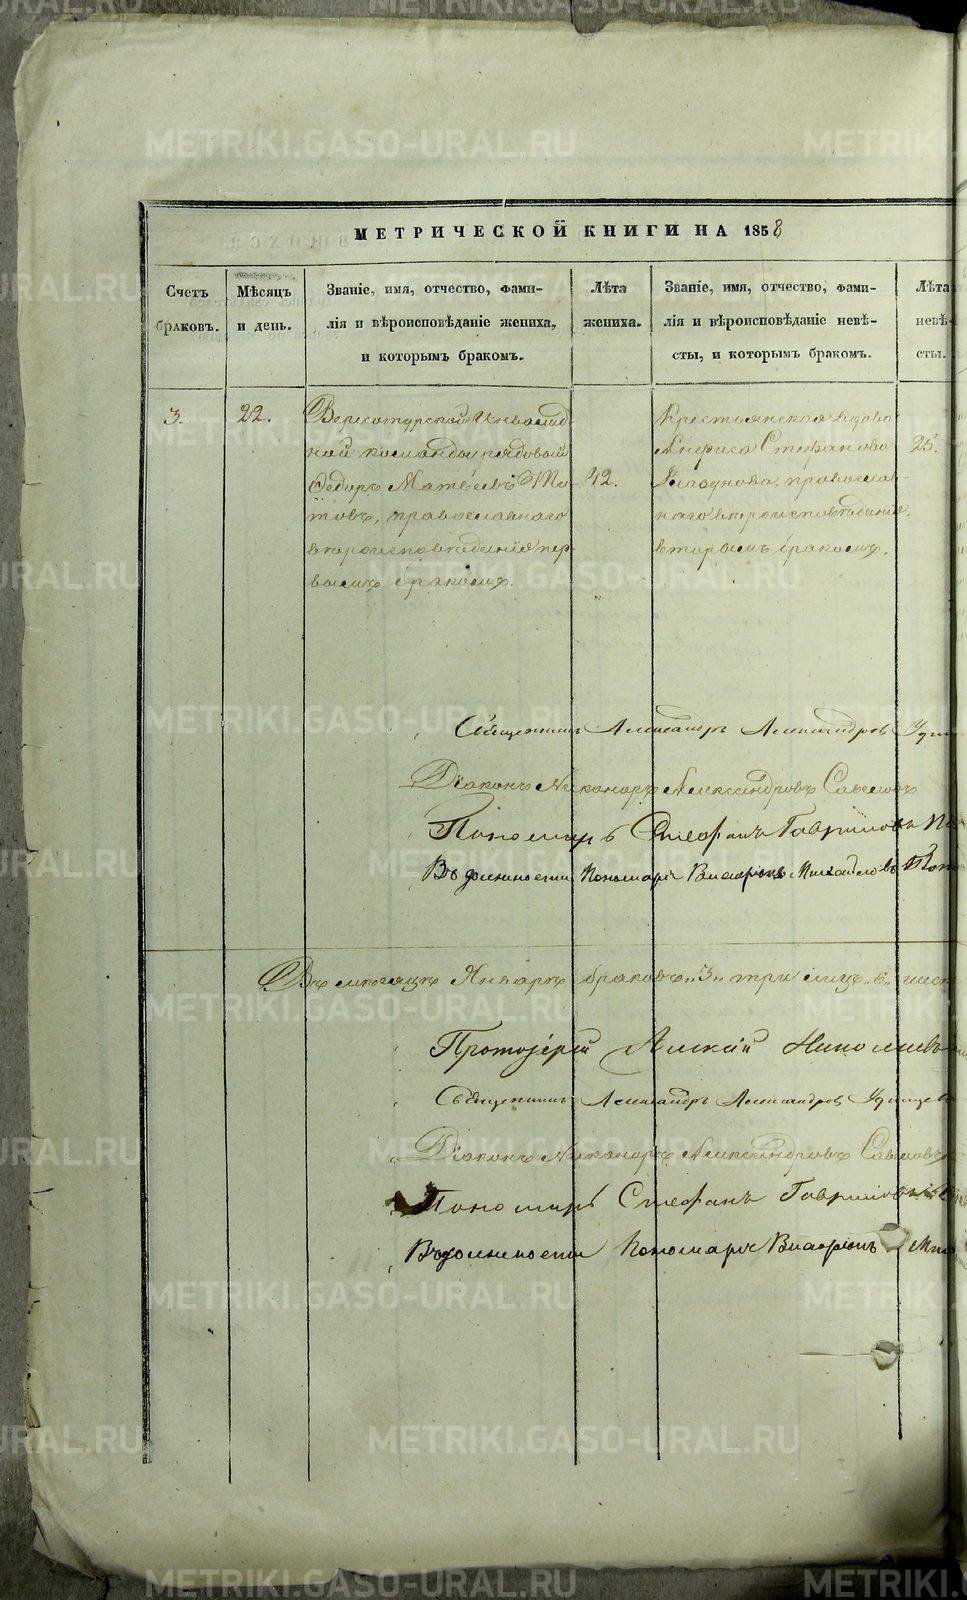 МЕТРИЧЕСКОЙ КНИГИ НА 1858
Счетъ браковъ.
Мѣсяцъ и день.
Званіе, имя, отчество, фами-
лія и вѣроисповѣданіе жениха,
и которымъ бракомъ.
Лѣта жениха.
Званіе, имя, отчество, фами-
лія и вѣроисповѣданіе невѣ-
сты, и которымъ бракомъ.
Лѣта
невѣ-
сты.
3.
22.
Верхотурской Инвалид
ной команды рядовой
Ѳедоръ Матвѣевъ
товъ, православнаго
вѣроисповѣданія пер
вымъ бракомъ.
42.
Крестьянская вдова
Анфиса Стефанова
православ
наго вѣроисповѣданія
вторымъ бракомъ.
25.
Священникъ Александръ Александровъ
Діаконъ Никаноръ Александровъ
Пономарь Стефанъ Гавриловъ
Въ должности Пономаря Михайловъ
Въ мѣсяцѣ Январѣ браковъ „3„ три лицъ „6„
Протоіерей Алексій Николаевъ
Священникъ Александръ Александровъ
Діаконъ Никаноръ Александровъ
Пономарь Стефанъ Гавриловъ
Въ должности Пономаря
METRIKI.GASO-URAL.RU